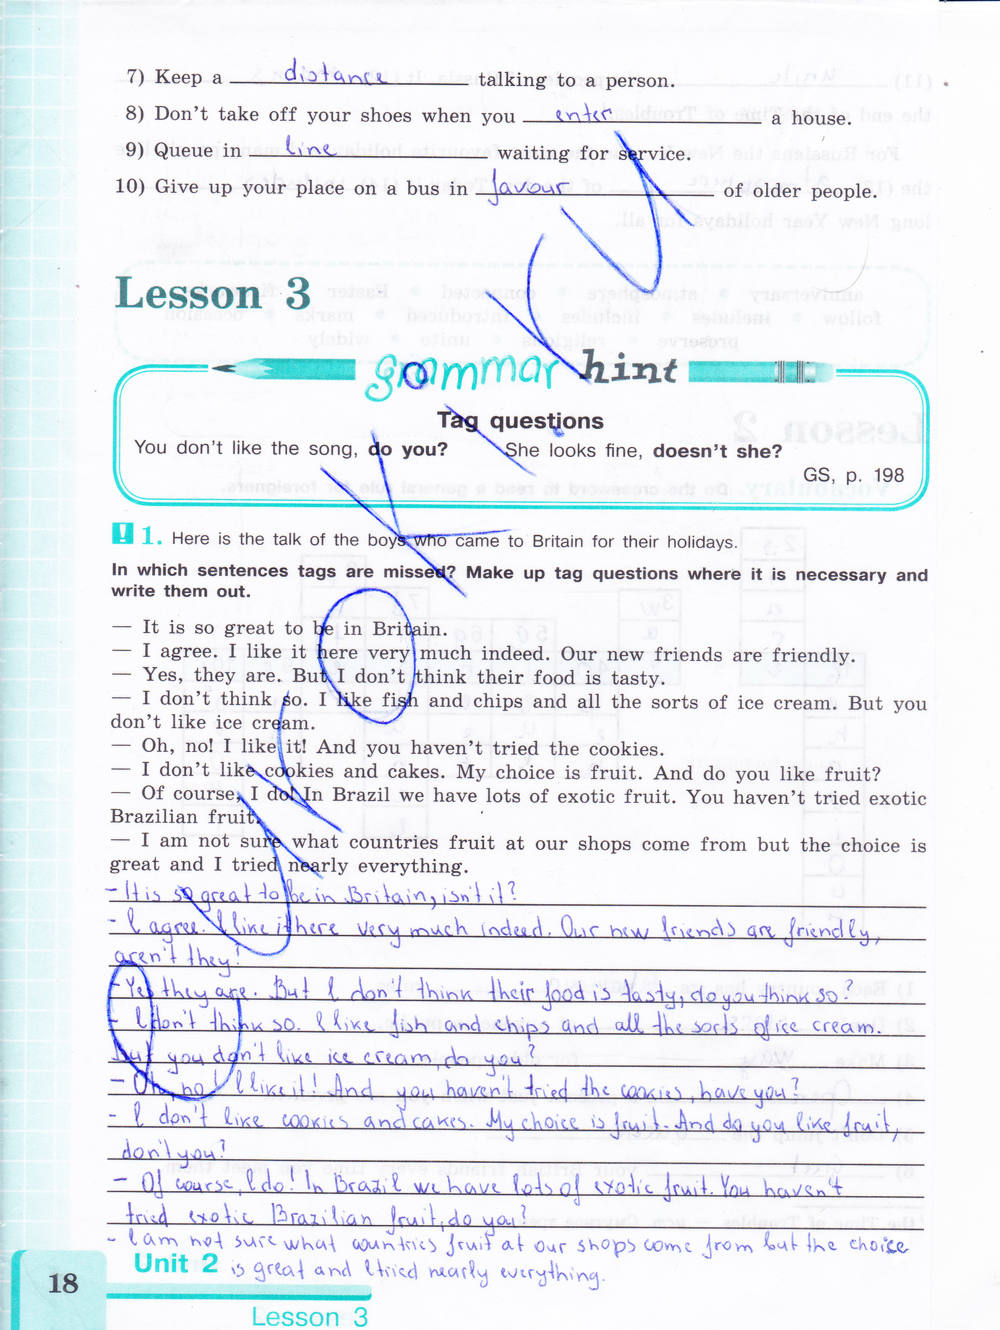 7) Keep a distance talking to a person.
8) Don't take off your shoes when you enter a house.
9) Queue in line waiting for service.
10) Give up your place on a bus in favour of older people.
Lesson 3
grammar hint
Tag questions
You don't like the song, do you? She looks fine, doesn't she?
GS, p. 198
! 1. Here is the talk of the boys who came to Britain for their holidays.
In which sentences tags are missed? Make up tag questions where it is necessary and
write them out.
— It is so great to be in Britain.
— I agree. I like it here very much indeed. Our new friends are friendly.
— Yes, they are. But I don't think their food is tasty.
— I don't think so. I like fish and chips and all the sorts of ice cream. But you
don't like ice cream.
— Oh, no! I like it! And you haven't tried the cookies.
— I don't like cookies and cakes. My choice is fruit. And do you like fruit?
— Of course, I do! In Brazil we have lots of exotic fruit. You haven't tried exotic
Brazilian fruit.
— I am not sure what countries fruit at our shops come from but the choice is
great and I tried nearly everything.
- It is so great to be in Britain, isn't it?
- I agree. I like it here very much indeed. Our new friends are friendly,
aren't they?
- Yes, they are. But I don't think their food is tasty, do you think so?
- I don't think so. I like fish and chips and all the sorts of ice cream.
But you don't like ice cream, do you?
- Oh, no! I like it! And you haven't tried the cookies, have you?
- I don't like cookies and cakes. My choice is fruit. And do you like fruit,
don't you?
- Of course, I do! In Brazil we have lots of exotic fruit. You haven't
tried exotic Brazilian fruit, do you?
- I am not sure what countries fruit at our shops come from but the choice
is great and I tried nearly everything.
18
Unit 2
Lesson 3